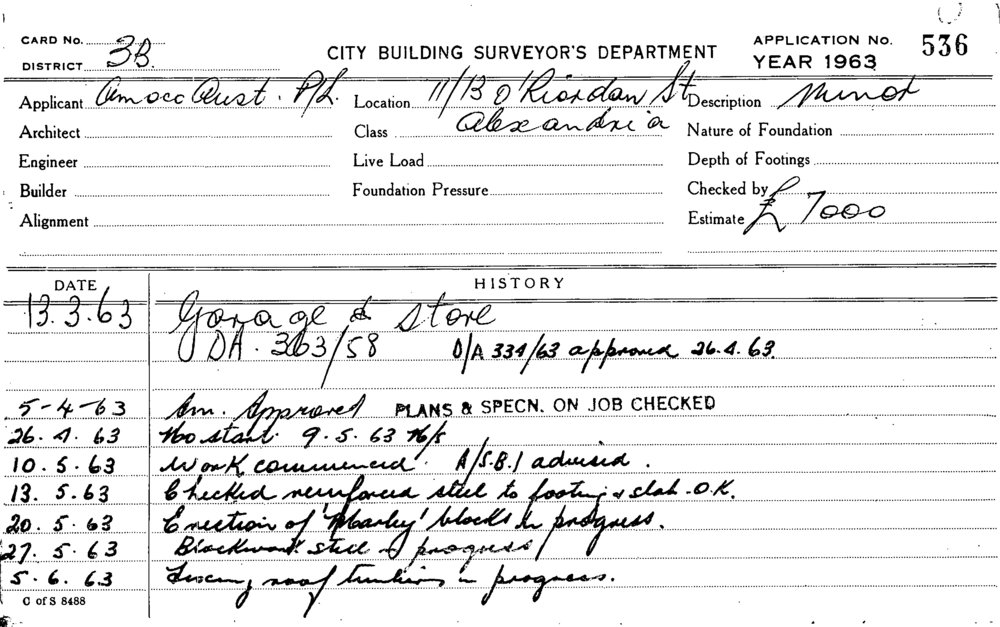 CARD No. 3B.
DISTRICT
CITY BUILDING SURVEYOR'S DEPARTMENT
APPLICATION No. 536
YEAR 1963
Applicant Amoco Aust. P/L. Location 11/13 O'Riordan St Description Minor
Alexandria
Architect Class Nature of Foundation
Engineer Live Load Depth of Footings
Builder Foundation Pressure Checked by
Alignment Estimate £7000
DATE HISTORY
13.3.63 Garage & Store
DA. 363/58 D/A 334/63 approved 26.4.63.
5-4-63 Am. Approved PLANS & SPECN. ON JOB CHECKED
26.4.63 No start. 9.5.63 N/S
10.5.63 Work commenced. A/S.B.I advised.
13.5.63 Checked reinforced steel to footing & slab. O.K.
20.5.63 Erection of 'Marley' blocks in progress.
27.5.63 Blockwork still in progress
5.6.63 Fixing roof timbers in progress.
C of S 8488